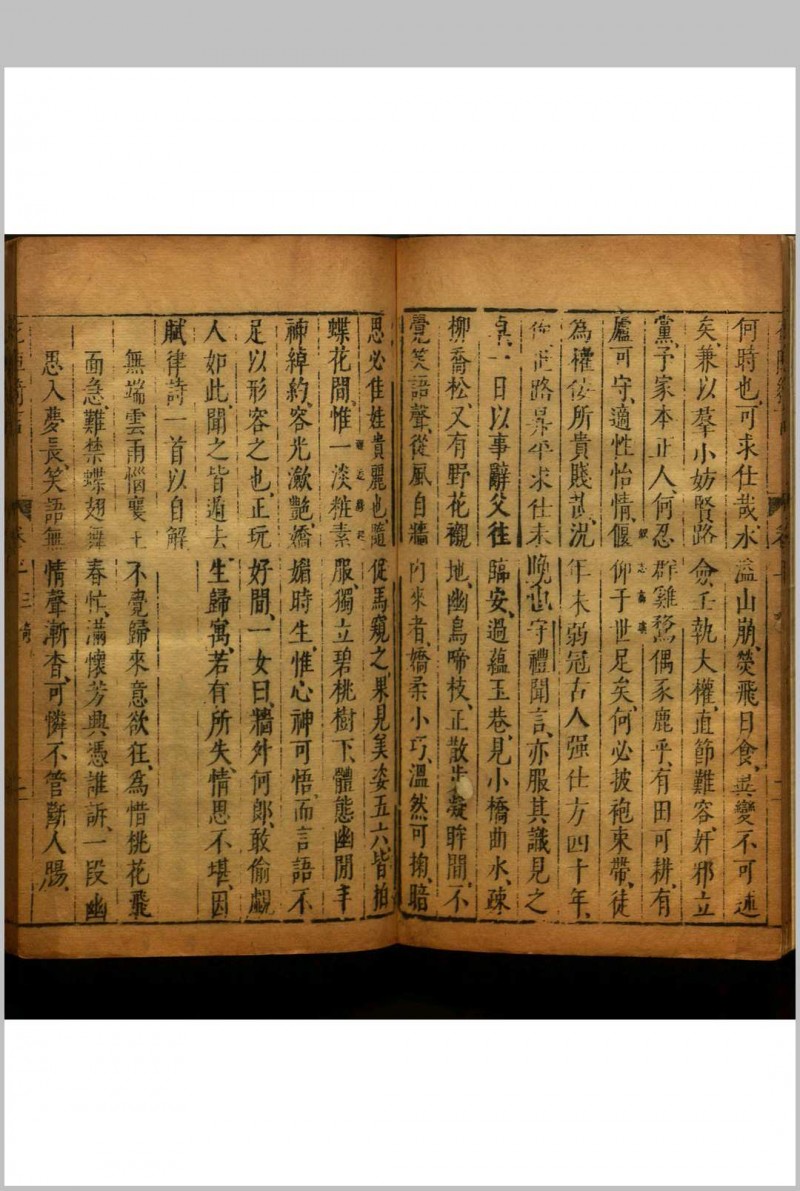 何時也可求仕哉水溢山崩熒飛日食異變不可速
矣兼以羣小妨賢路僉壬執大權直節難容奸邪立
黨予家本正人何忍群雞鶩偶豕鹿乎有田可耕有
廬可守適性怡情偃仰于世足矣何必披袍束帶徒
為權倖所貴賤哉況年未弱冠古人强仕方四十年
世路昇平求仕未晚也守禮聞言亦服其識見之
卓一日以事辭父往臨安過蘊玉巷見小橋曲水疎
柳喬松又有野花襯地幽鳥啼枝正散步凝眸間不
覺笑語聲從風自牆内來者嬌柔小巧溫然可掬暗
思必佳姓貴麗也隨促馬窺之果見美姿五六皆拍
蝶花間惟一淡粧素服獨立碧桃樹下體態幽閒丰
神綽約容光瀲艷嬌媚時生惟心神可悟而言語不
足以形容之也正玩好間一女曰牆外何郎敢偷覷
人如此聞之皆遁去生歸寓若有所失情思不堪因
賦律詩一首以自解
無端雲雨惱襄王不覺歸來意欲狂為惜桃花飛
面急難禁蝶翅舞春忙滿懷芳興憑誰訴一段幽
思入夢長笑語無情聲漸杳可憐不管斷人腸